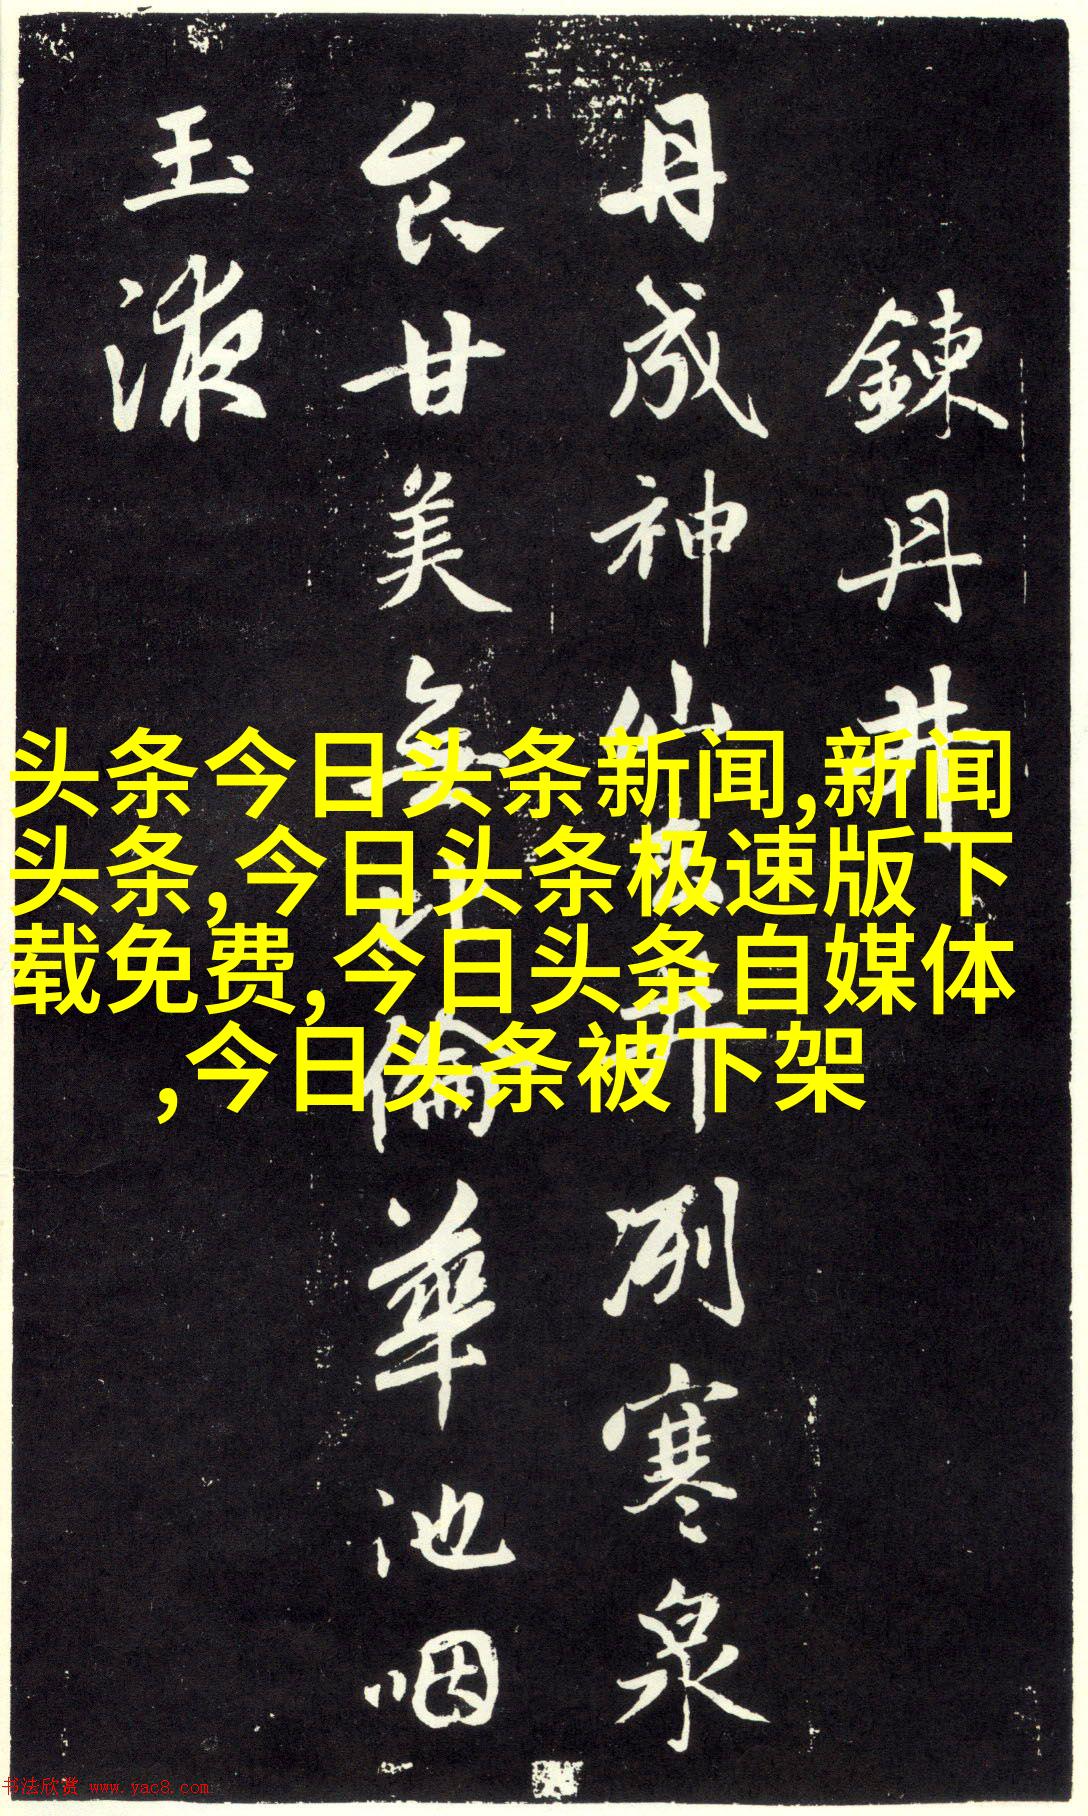 鍊丹井
丹成神仙去井冽寒泉
食甘美無比倫華池咽
玉液
头条今日头条新闻,新闻
头条,今日头条极速版下
载免费,今日头条自媒体
,今日头条被下架
书法欣赏 www.yac8.com